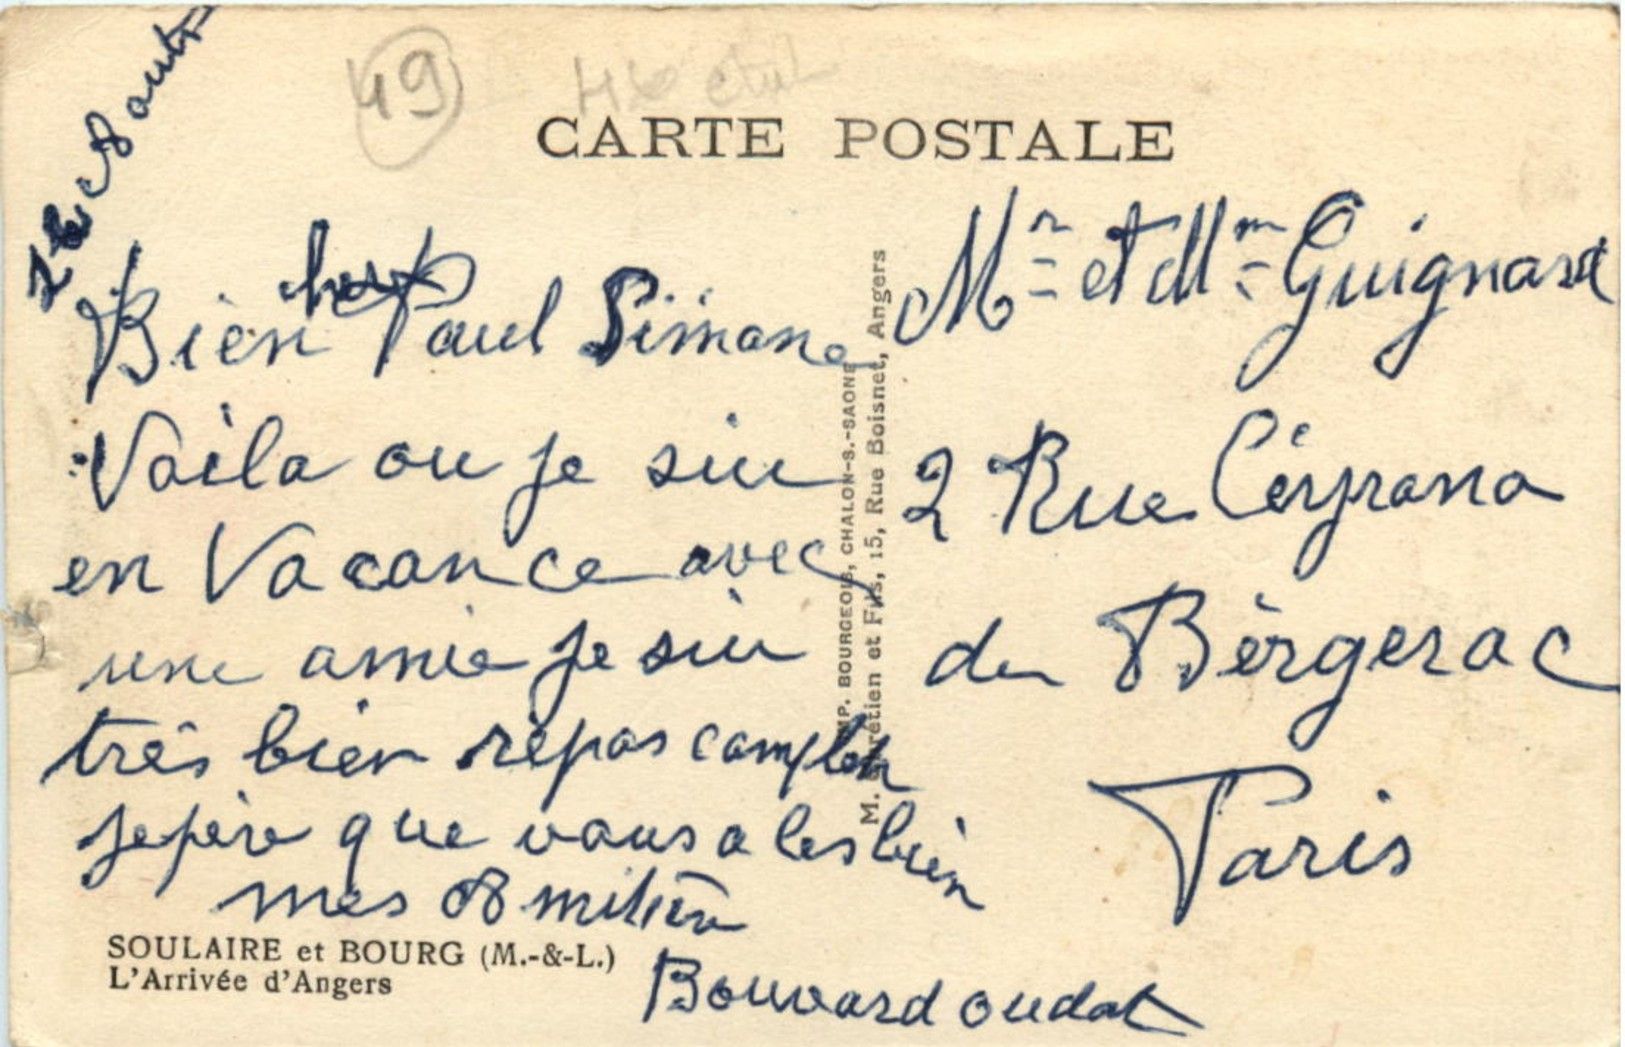 le 8 aout
49
CARTE POSTALE
Bien cher Paul Simone
Voila ou je sui
en Vacance avec
une amie je sui
très bien repas complet
jepère que vous ales bien
mes 8 militèn
Bouvard oudat
SOULAIRE et BOURG (M.-&-L.)
L'Arrivée d'Angers
IMP. BOURGEOIS, CHALON-S.-SAONE
M. Chrétien et Fils, 15, Rue Boisnet, Angers
Mr et Mm Guignard
2 Rue Cérjrano
de Bèrgerac
Paris